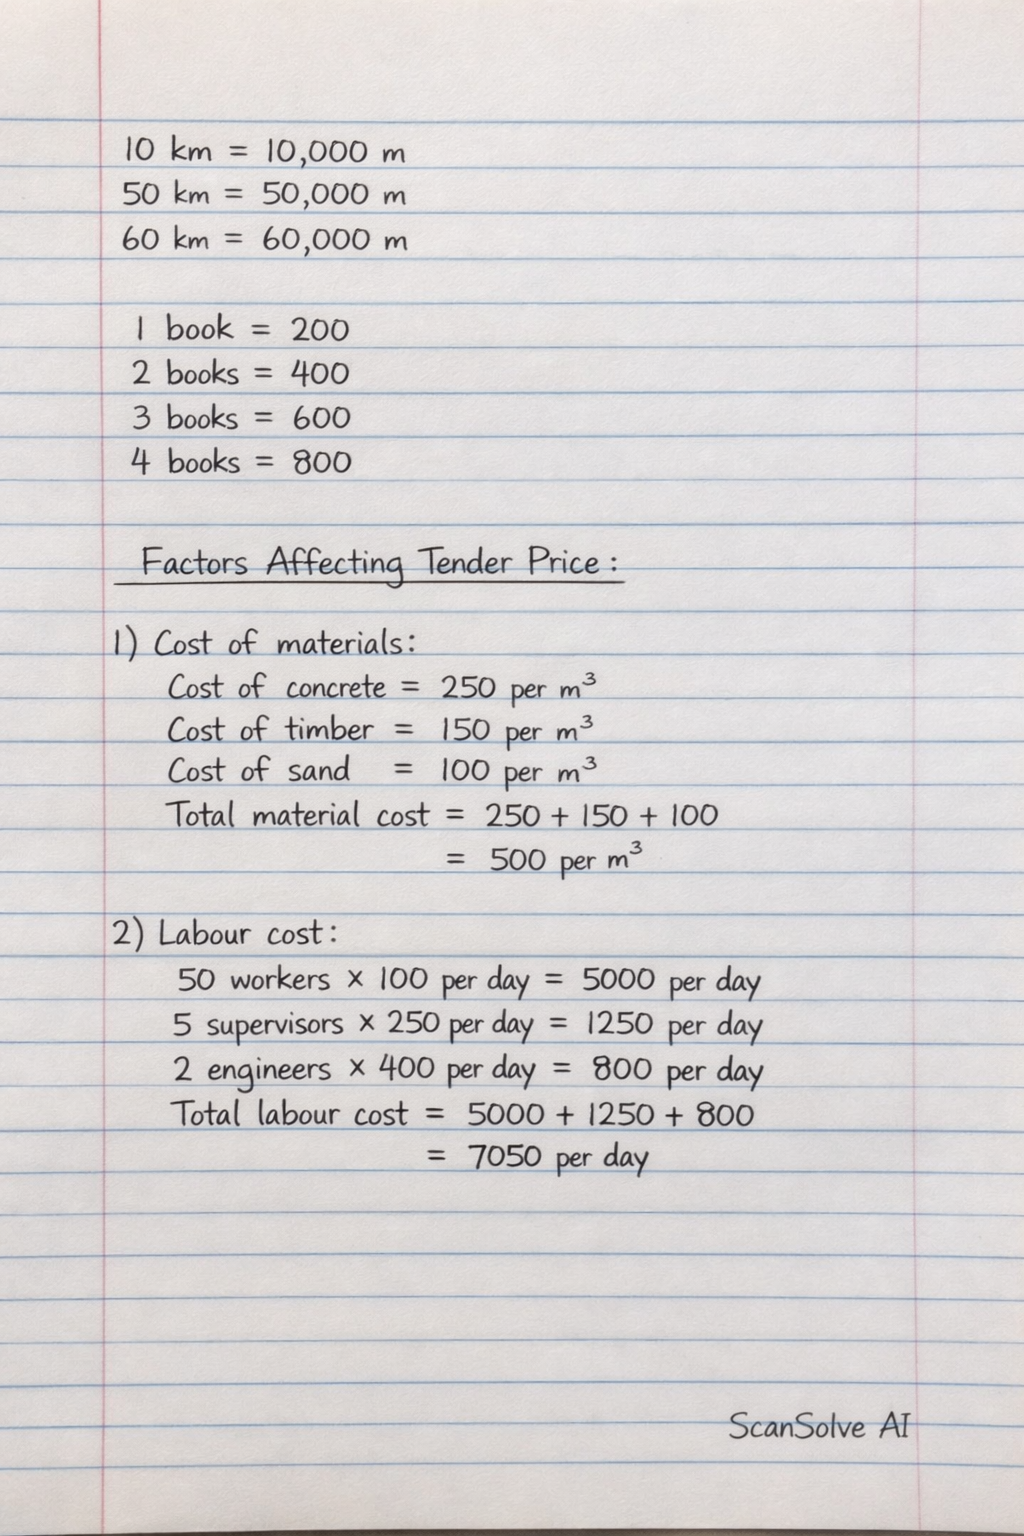 10 km = 10,000 m
50 km = 50,000 m
60 km = 60,000 m
1 book = 200
2 books = 400
3 books = 600
4 books = 800
Factors Affecting Tender Price:
1) Cost of materials:
Cost of concrete = 250 per m³
Cost of timber = 150 per m³
Cost of sand = 100 per m³
Total material cost = 250 + 150 + 100
= 500 per m³
2) Labour cost:
50 workers × 100 per day = 5000 per day
5 supervisors × 250 per day = 1250 per day
2 engineers × 400 per day = 800 per day
Total labour cost = 5000 + 1250 + 800
= 7050 per day
ScanSolve AI